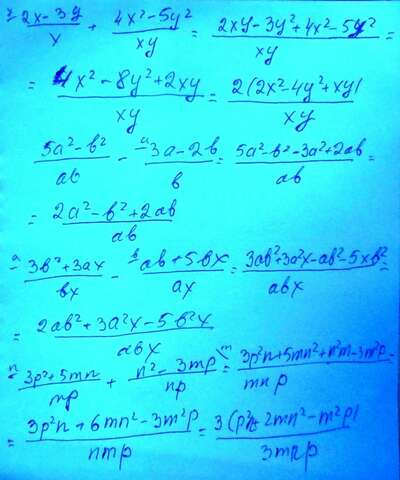 y 2x-3y/x + 4x²-5y²/xy = 2xy-3y²+4x²-5y²/xy =
= 4x²-8y²+2xy/xy = 2(2x²-4y²+xy)/xy
5a²-b²/ab - a 3a-2b/b = 5a²-b²-3a²+2ab/ab =
= 2a²-b²+2ab/ab
a 3b²+3ax/bx - b ab+5bx/ax = 3ab²+3a²x-ab²-5xb²/abx =
= 2ab²+3a²x-5b²x/abx
n 3p²+5mn/mp + n²-3mp/np m = 3p²n+5mn²+n²m-3m²p/mnp =
= 3p²n+6mn²-3m²p/nmp = 3(p²n+2mn²-m²p)/3mnp